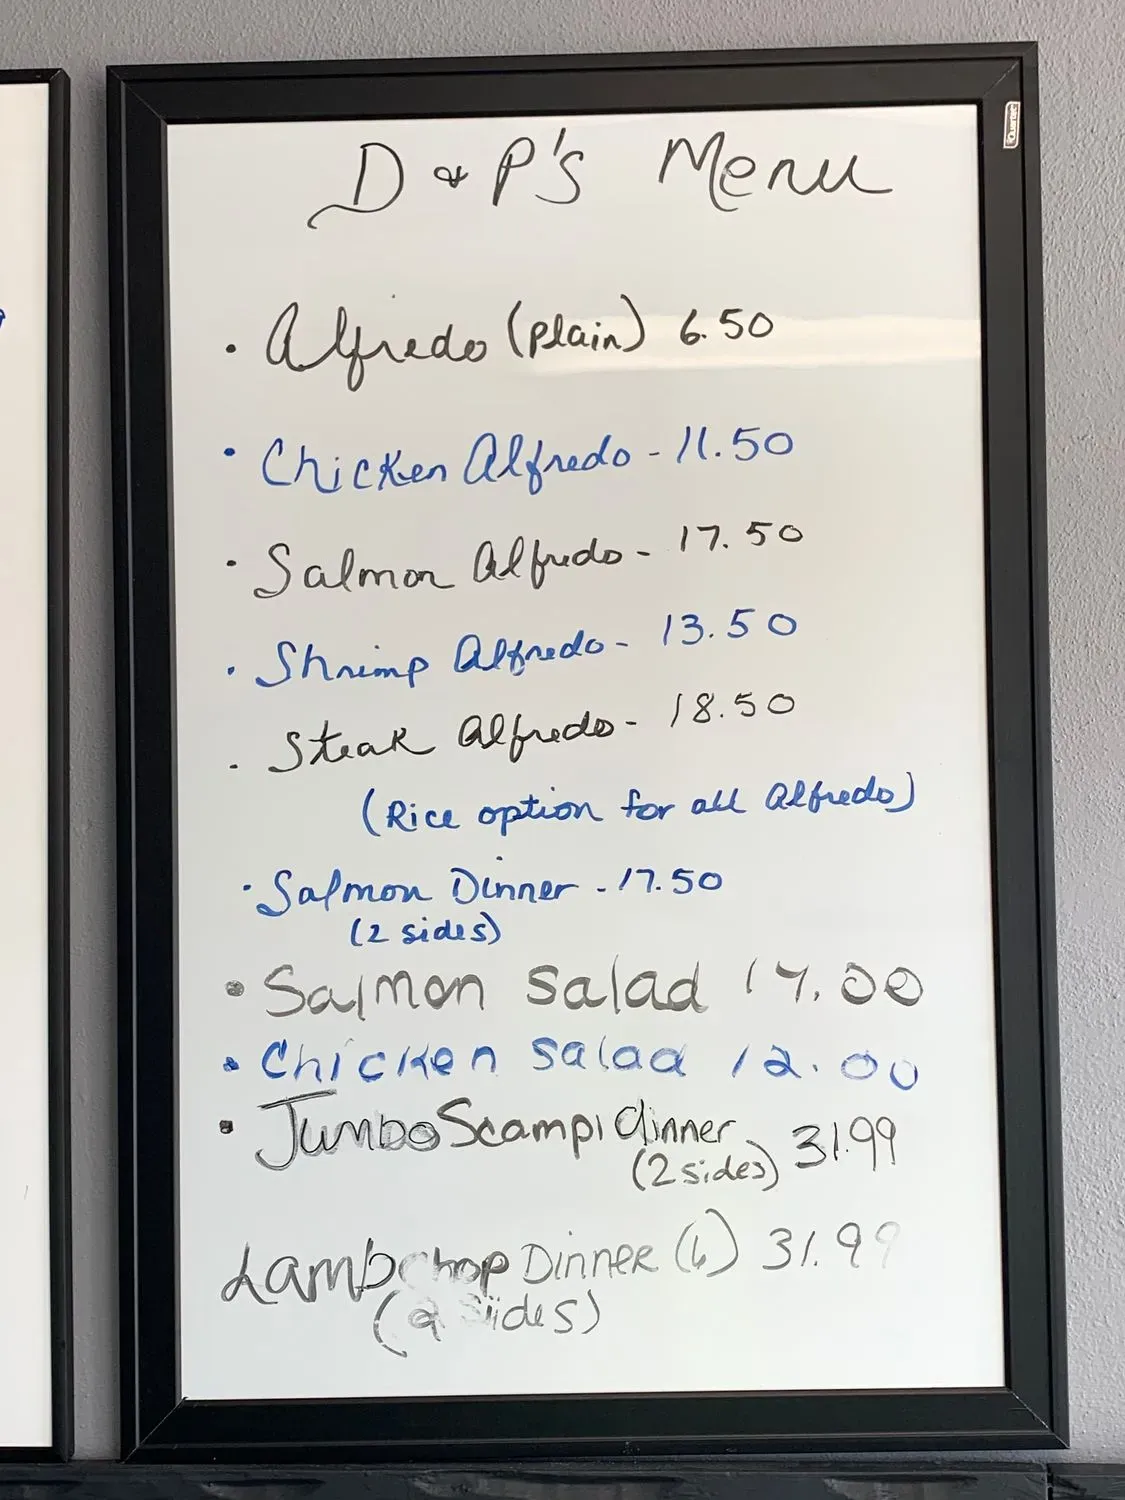 D & P's Menu
Quartet
• Alfredo (plain) 6.50
• Chicken Alfredo - 11.50
• Salmon Alfredo - 17.50
• Shrimp Alfredo - 13.50
• Steak Alfredo - 18.50
(Rice option for all Alfredo)
• Salmon Dinner - 17.50
(2 sides)
• Salmon Salad 17.00
• Chicken Salad 12.00
• Jumbo Scampi dinner
(2 sides) 31.99
Lambchop Dinner (6) 31.99
(2 Sides)